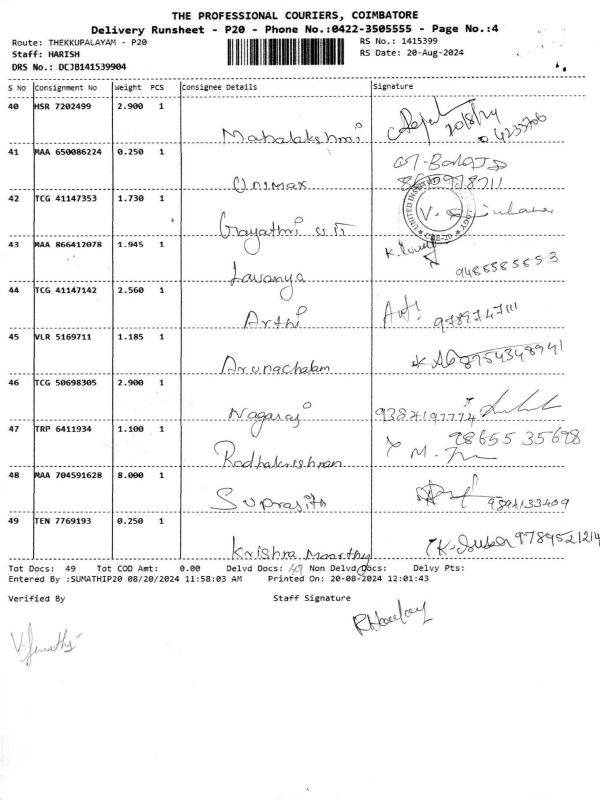 THE PROFESSIONAL COURIERS, COIMBATORE
Delivery Runsheet - P20 - Phone No.:0422-3505555 - Page No.:4
Route: THEKKUPALAYAM - P20 RS No.: 1415399
Staff: HARISH RS Date: 20-Aug-2024
DRS No.: DCJB141539904
S No Consignment No Weight PCS Consignee Details Signature
40 HSR 7202499 2.900 1
Mahalakshmi 20/8/24
41 MAA 650086224 0.250 1
Unimax
42 TCG 41147353 1.730 1
Gayathri
43 MAA 866412078 1.945 1
Lavanya 9486585653
44 TCG 41147142 2.560 1
Arthi 9789747111
45 VLR 5169711 1.185 1
Arunachalam 8754348941
46 TCG 50698305 2.900 1
Nagaraj 9384197774
47 TRP 6411934 1.100 1 98655 35698
Radhakrishnan
48 MAA 704591628 8.000 1
Suprasith 9894133409
49 TEN 7769193 0.250 1
Krishna Moorthy 9789521214
Tot Docs: 49 Tot COD Amt: 0.00 Delvd Docs: 49 Non Delvd Docs: Delvy Pts:
Entered By :SUMATHIP20 08/20/2024 11:58:03 AM Printed On: 20-08-2024 12:01:43
Verified By Staff Signature